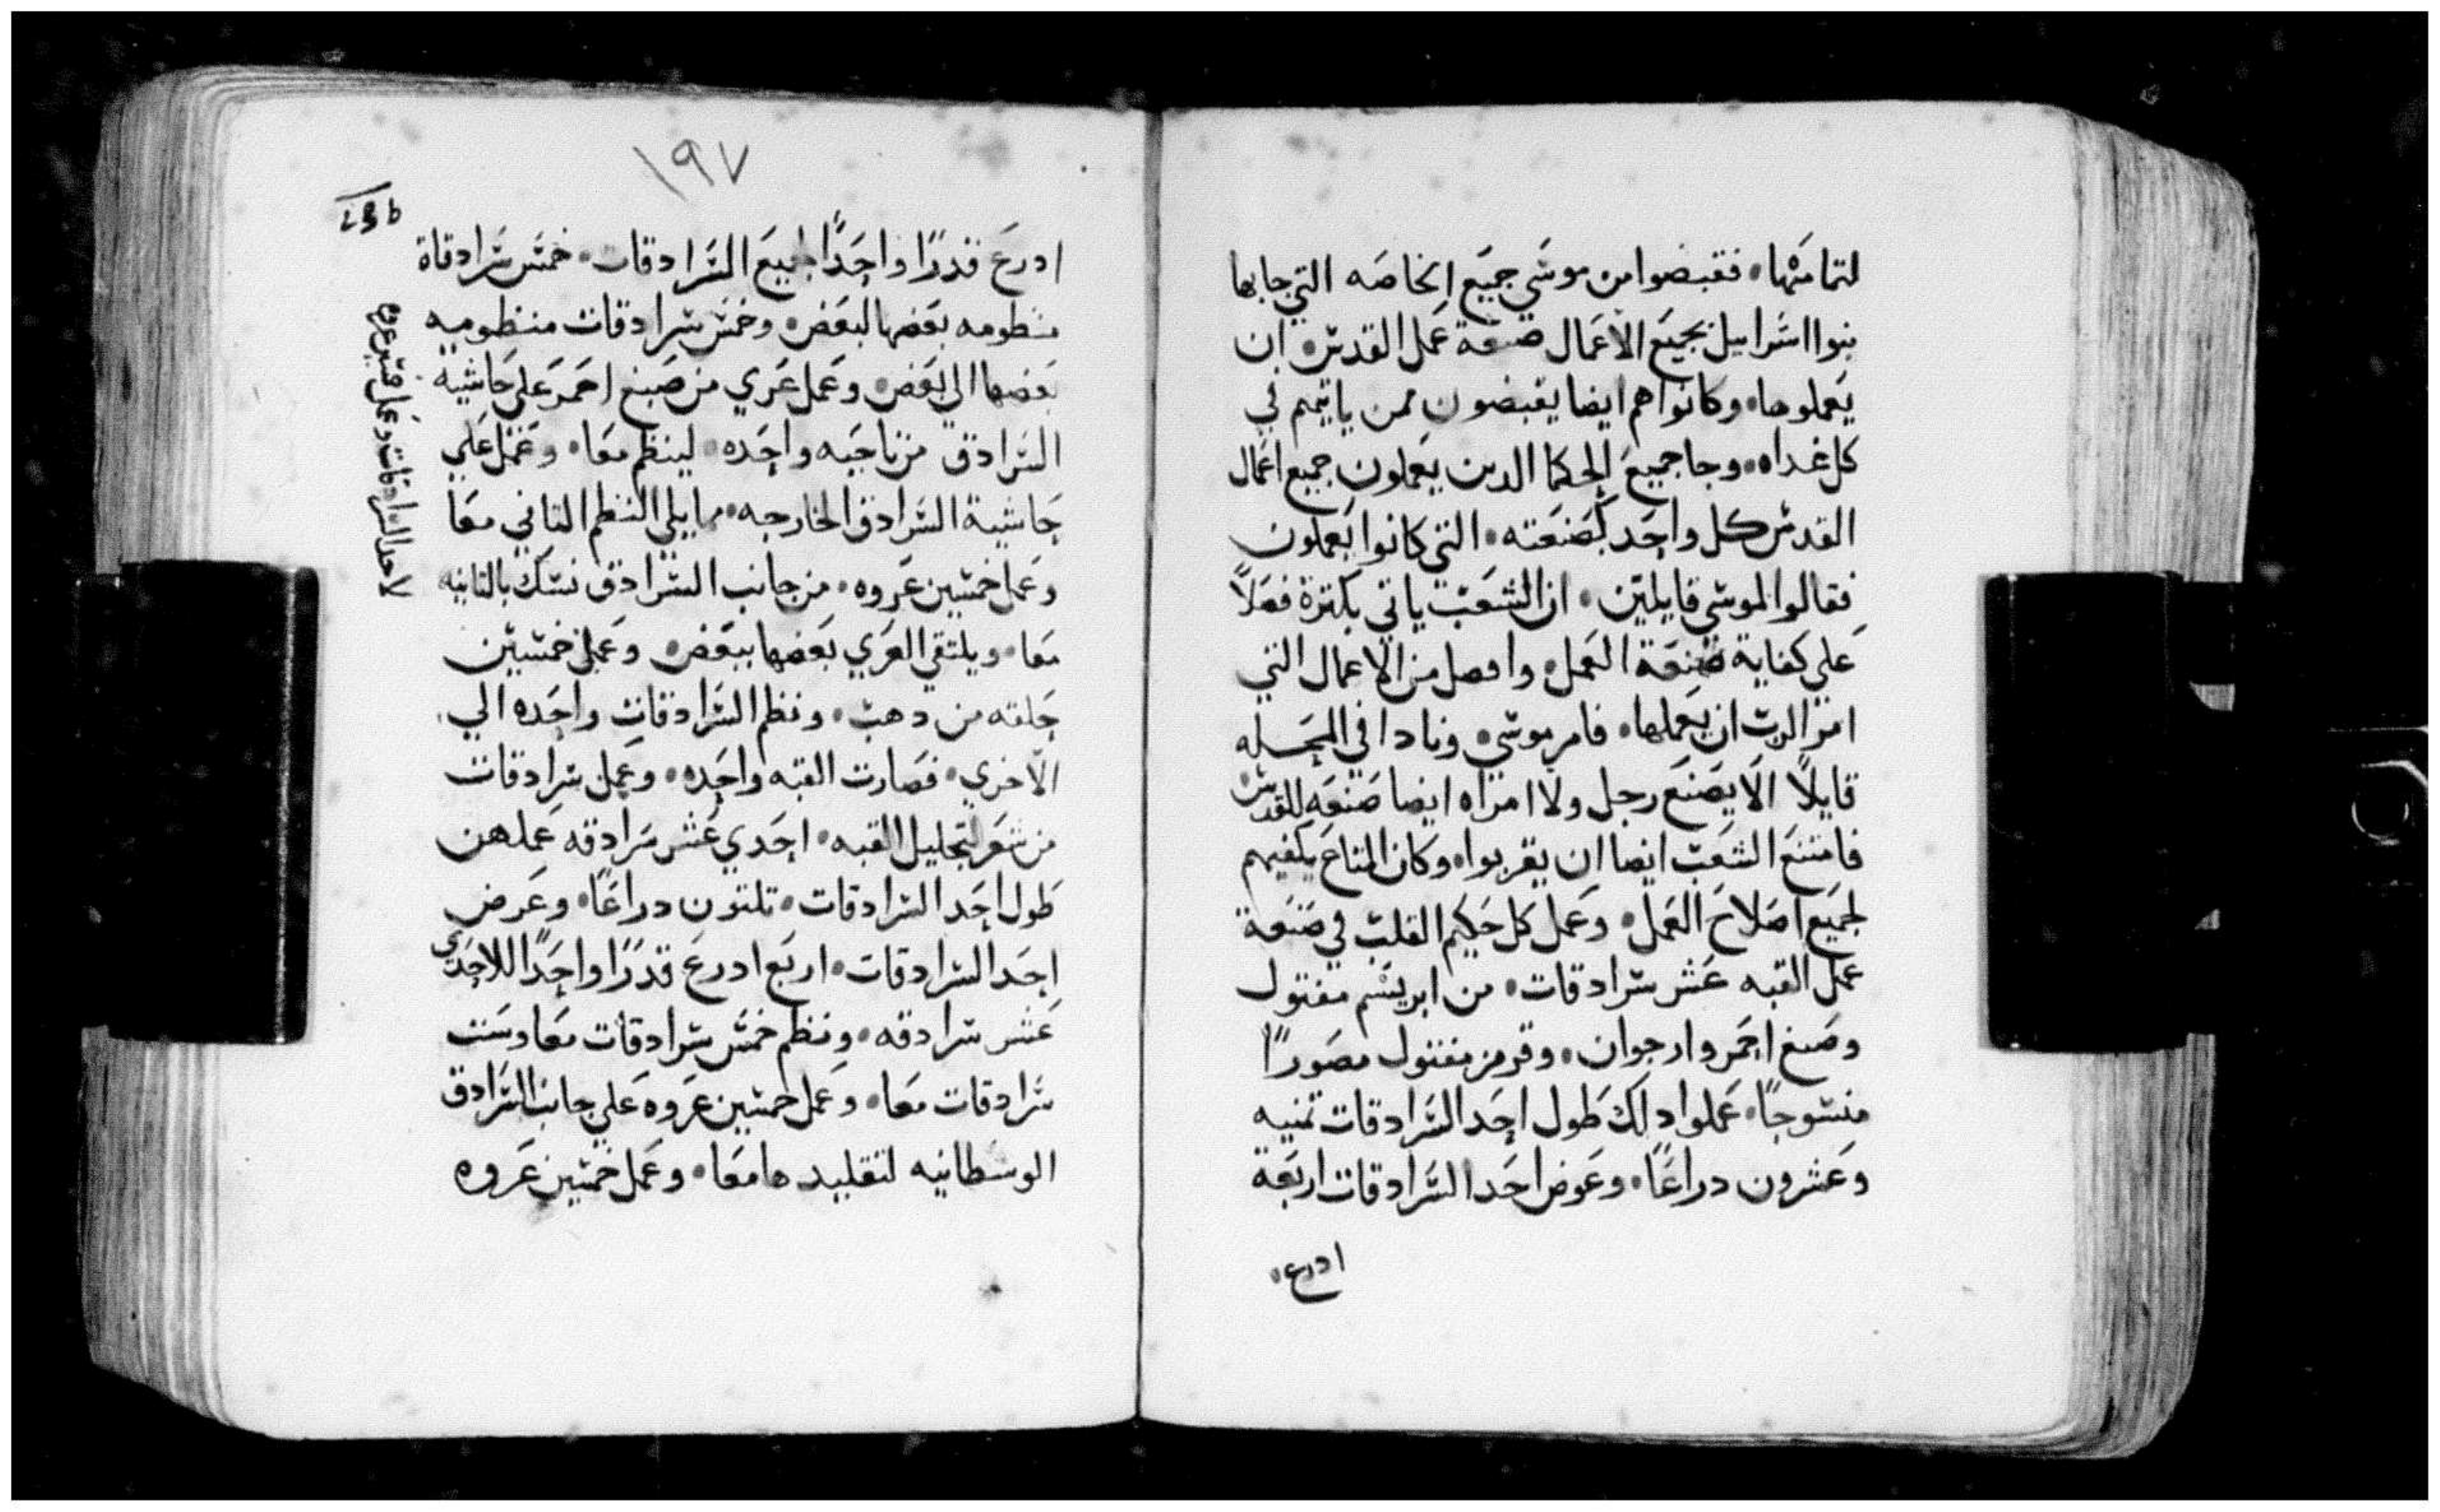 لتمامتها، فقبضوا من موسي جميع الخاصه التي جابها
بنوا اسراييل بجميع الاعمال صنعة عمل القدس، ان
يعملوها، وكانوا هم ايضا يقبضون ممن ياتيهم في
كل غداه، وجا جميع الحكما الدين يعملون جميع اعمال
القدس كل واحد لصنعته، التي كانوا يعملون
فقالوا لموسي قايلين، ان الشعب ياتي بكترة فعلاً
علي كفاية صنعة العمل، وافصل من الاعمال التي
امر الرب ان يعملها، فامر موسي، ونادا في المحله
قايلاً الا يصنع رجل ولا امراه ايضا صنعه للقدس
فامتنع الشعب ايضا ان يقربوا، وكان المتاع يكفيهم
لجميع اصلاح العمل، وعمل كل حكيم القلب في صنعة
عمل القبه عشر سرادقات، من ابريسم مفتول
وصبغ احمر وارجوان، وقرمز مفتول مصوراً
منسوجاً، عملوا دلك طول احد السرادقات تمنيه
وعشرون دراعاً، وعرض احد السرادقات اربعة
ادرع،
١٩٧
ادرع قدرًا واحدًا لجميع السرادقات، خمس سرادقاة
منطومه بعضها لبعض، وخمس سرادقات منظوميه
بعضها الي بعض، وعمل عري من صبغ احمر علي حاشية
السرادق من ناحيه واحده، لينظم معا، وعمل علي
حاشية السرادق الخارجه، مما يلي النظم التاني معا
وعمل خمسين عروه، من جانب السرادق تسك بالتانيه
معا، ويلتقي العري بعضها ببعض، وعمل خمسين
حلقه من دهب، ونظم السرادقات واحده الي
الاخري، فصارت القبه واحده، وعمل سرادقات
من شعر لتجليل القبه، احدي عشر سرادقه عملهن
طول احد السرادقات، تلتون دراعًا، وعرض
احد السرادقات، اربع ادرع قدرًا واحدًا للاحدي
عشر سرادقه، ونظم خمس سرادقات معا وست
سرادقات معا، وعمل خمسين عروه علي جانب السرادق
الوسطانيه لتقليدها معا، وعمل خمسين عروه
لاحد السرادقات وعمل خمسين عروه